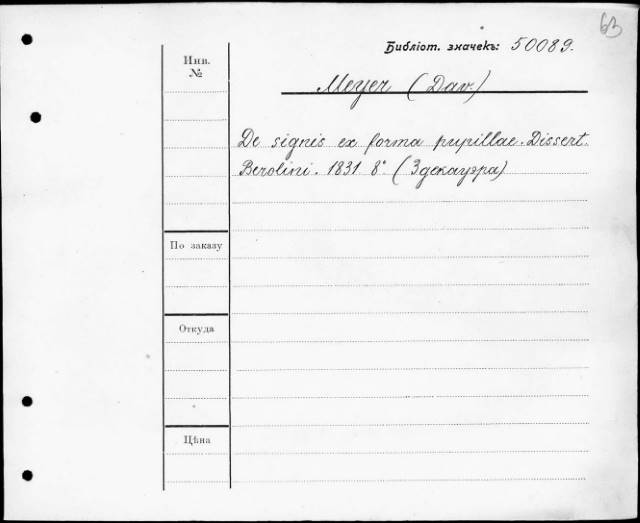 63
Библіот. значекъ: 50089.
Инв.
№
Meyer (Dav.)
De signis ex forma pupillae. Dissert.
Berolini. 1831 8° (Здекауэра)
По заказу
Откуда
Цѣна